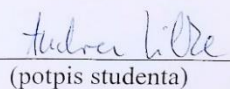 Andrea
(potpis studenta)